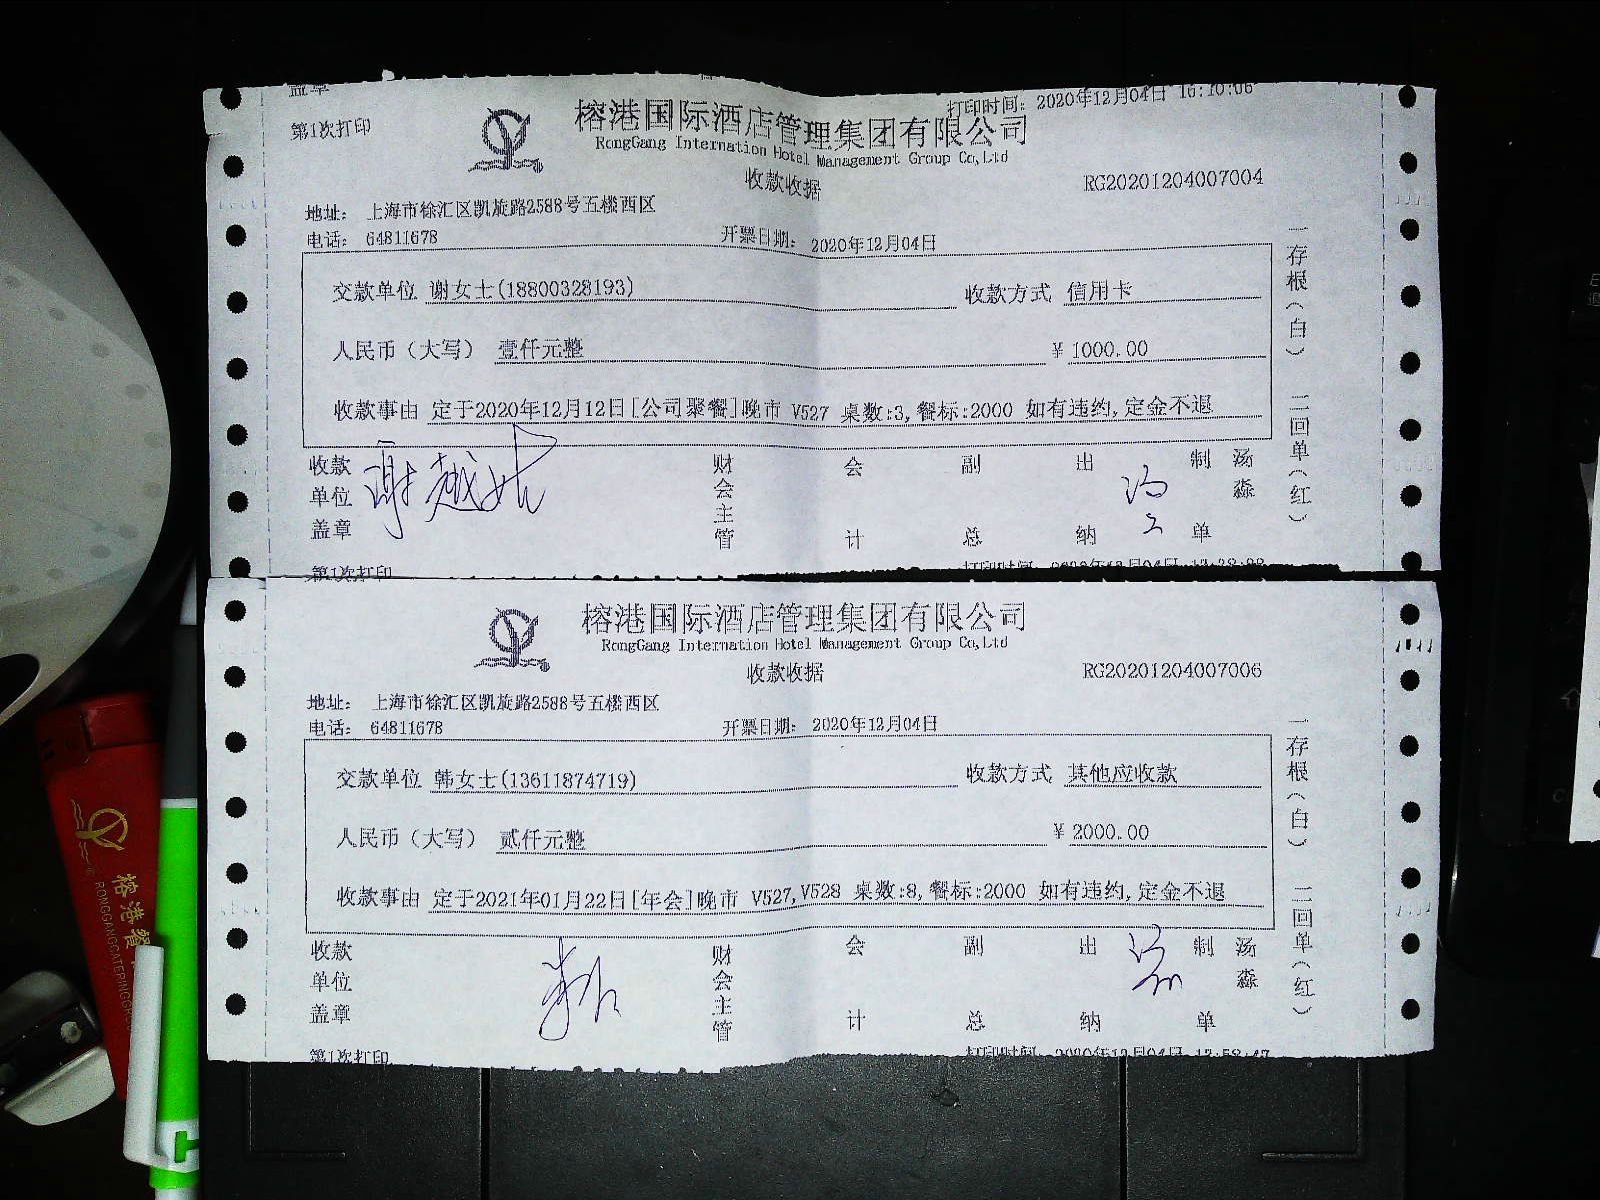 盖章
打印时间：2020年12月04日 16:10:06
第1次打印
榕港国际酒店管理集团有限公司
RongGang Internation Hotel Management Group Co,Ltd
收款收据
RG20201204007004
地址： 上海市徐汇区凯旋路2588号五楼西区
电话： 64811678
开票日期： 2020年12月04日
交款单位 谢女士(18800328193) 收款方式 信用卡
人民币（大写） 壹仟元整 ¥ 1000.00
收款事由 定于2020年12月12日[公司聚餐]晚市 V527 桌数:3,餐标:2000 如有违约,定金不退
一存根（白） 二回单（红）
收款单位盖章 财会主管 会计 副总 出纳 制单 汤淼
第1次打印
榕港国际酒店管理集团有限公司
RongGang Internation Hotel Management Group Co,Ltd
收款收据
RG20201204007006
地址： 上海市徐汇区凯旋路2588号五楼西区
电话： 64811678
开票日期： 2020年12月04日
交款单位 韩女士(13611874719) 收款方式 其他应收款
人民币（大写） 贰仟元整 ¥ 2000.00
收款事由 定于2021年01月22日[年会]晚市 V527,V528 桌数:8,餐标:2000 如有违约,定金不退
一存根（白） 二回单（红）
收款单位盖章 财会主管 会计 副总 出纳 制单 汤淼
第1次打印
打印时间：2020年12月04日
榕港餐
RONGGANGCATERINGGR